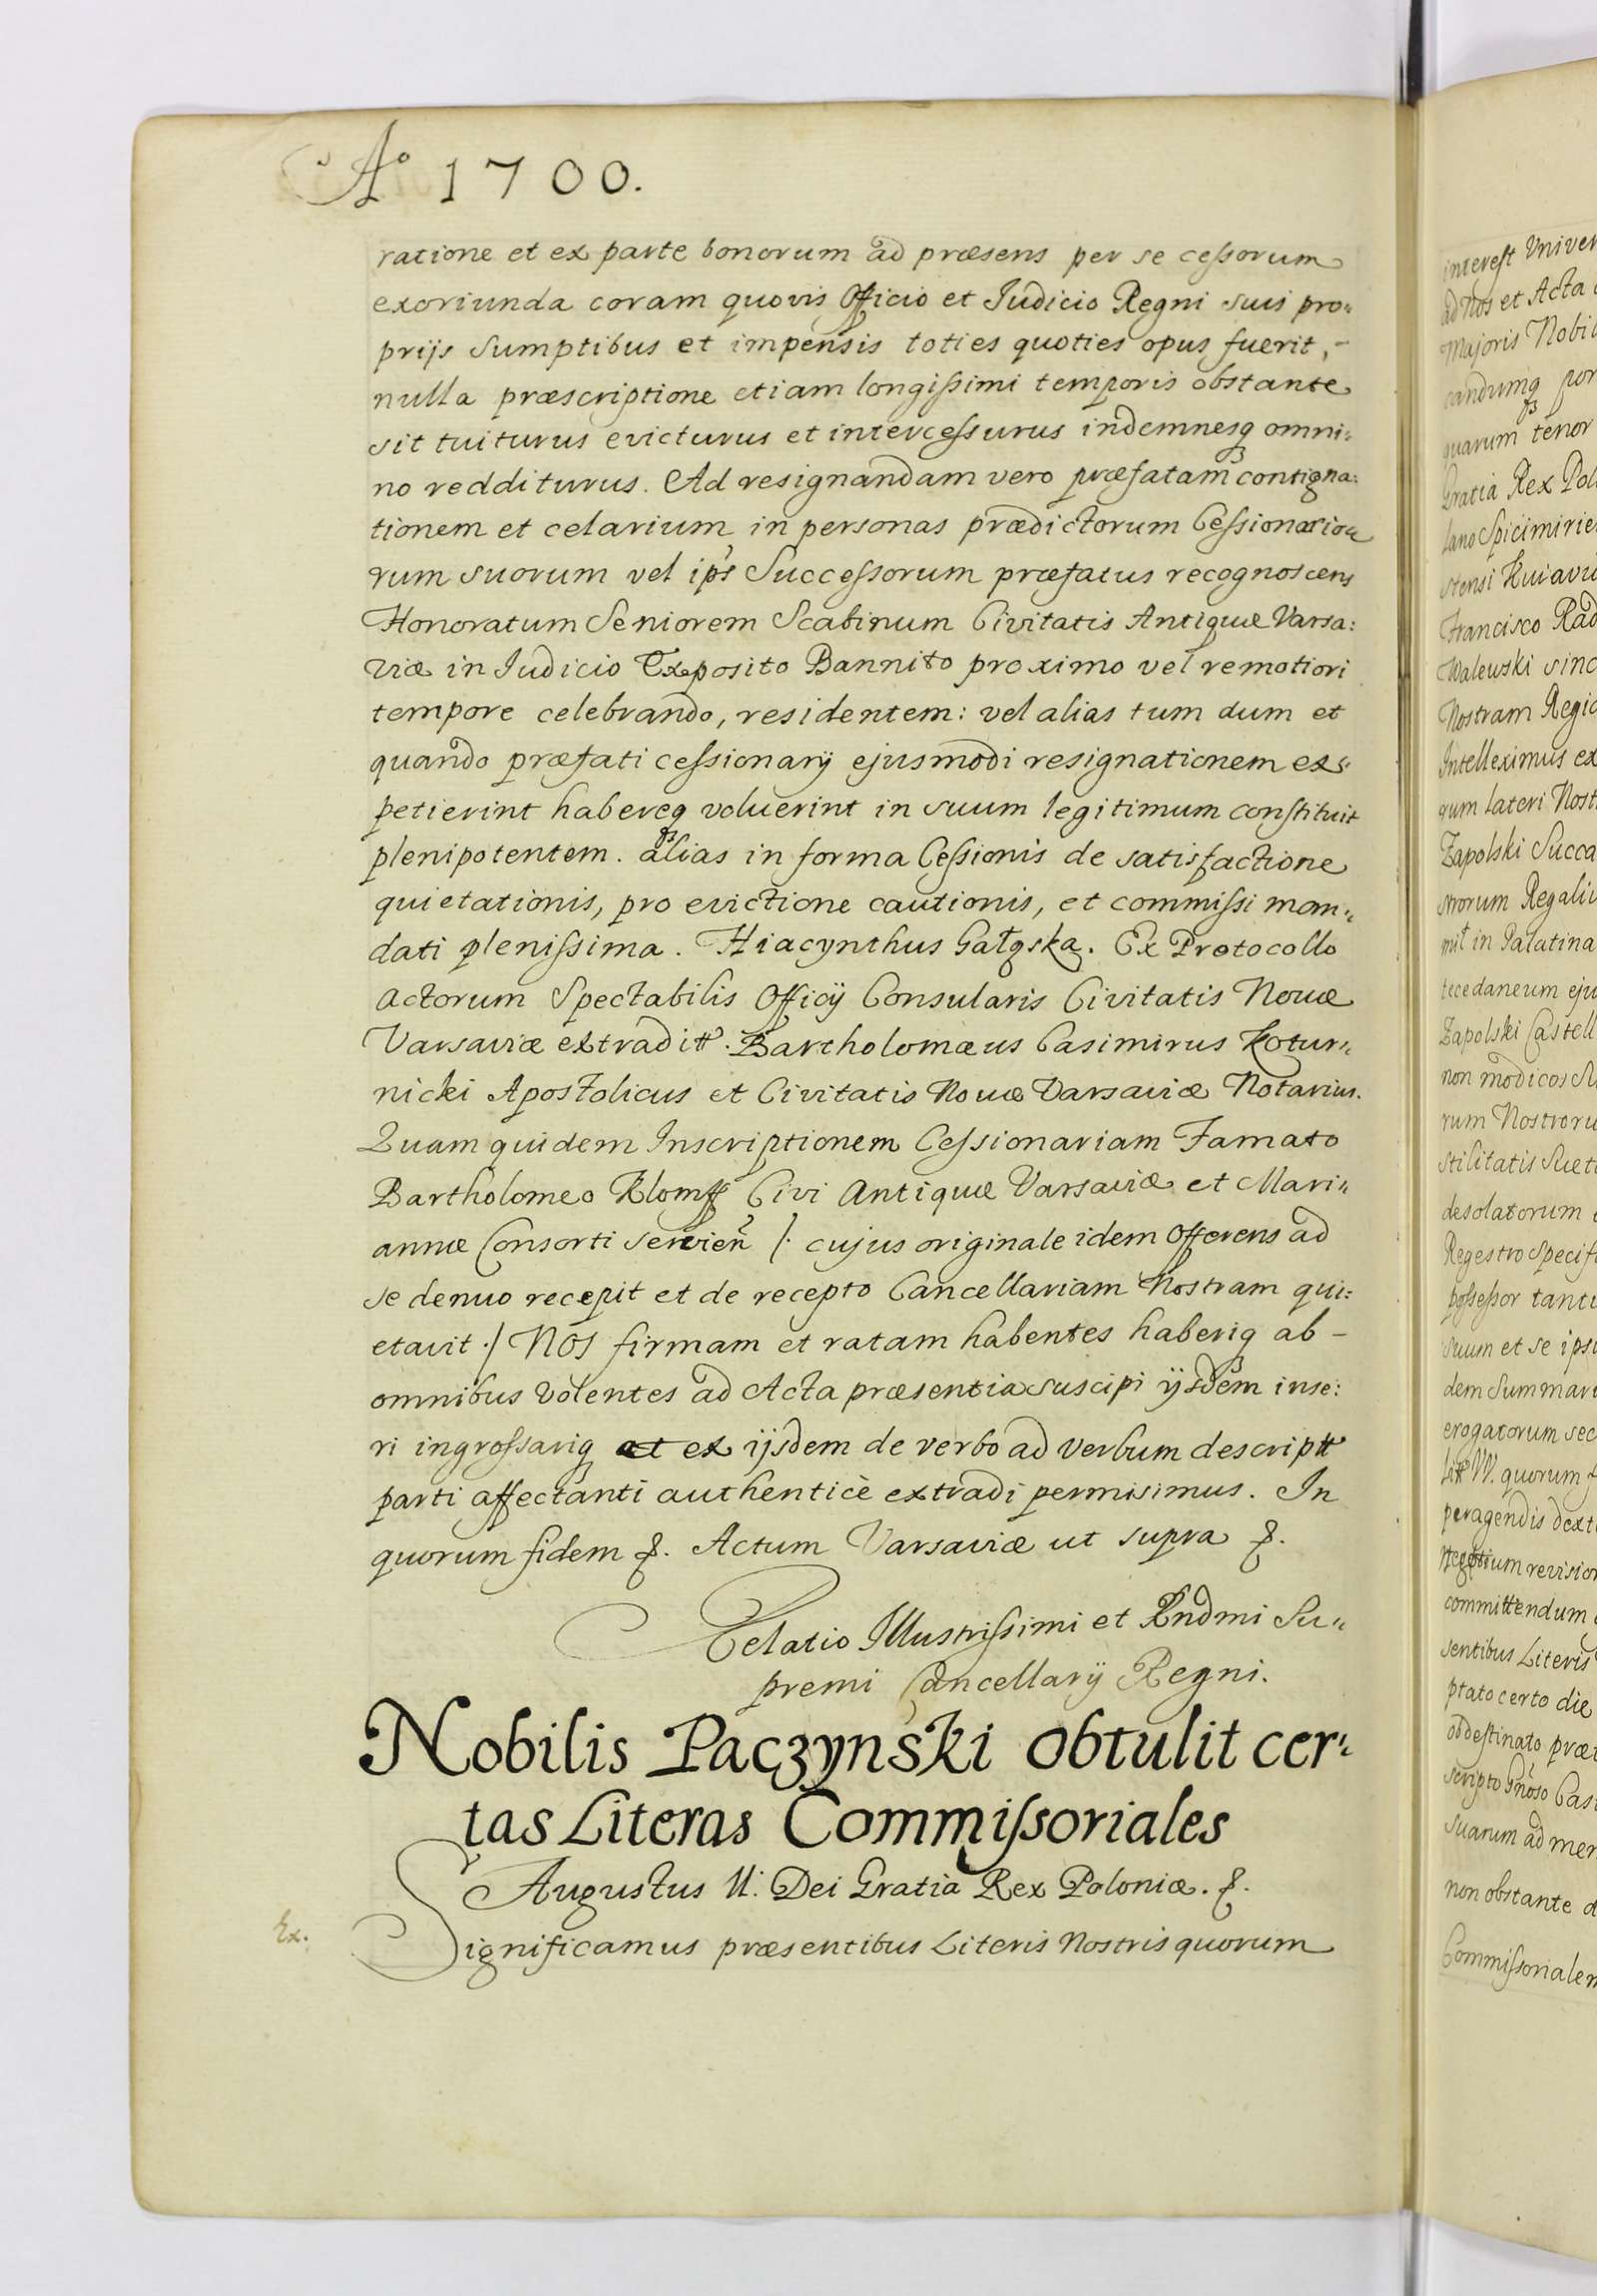 Aº 1700.
ratione et ex parte bonorum ad præsens per se cessorum
exoriunda coram quovis Officio et Iudicio Regni suis pro„
prijs sumptibus et impensis toties quoties opus fuerit, -
nulla præscriptione etiam longissimi temporis obstante
sit tuiturus evicturus et intercessurus indemnesq3 omni:
no redditurus. Ad resignandam vero præfatam contigna:
tionem et celarium in personas prædictorum Cessionario„
rum suorum vel ips' Successorum præfatus recognoscens
Honoratum Seniorem Scabinum Civitatis Antiquæ Varsa:
viæ in Iudicio Exposito Bannito proximo vel remotiori
tempore celebrando, residentem: vel alias tum dum et
quando præfati cessionarij ejusmodi resignationem ex„
petierint habereq3 voluerint in suum legitimum constituit
plenipotentem. alias in forma Cessionis de satisfactione
quietationis, pro evictione cautionis, et commissi man„
dati plenissima. Hiacynthus Gałęska. Ex Protocollo
Actorum Spectabilis Officij Consularis Civitatis Novæ
Varsaviæ extraditt. Bartholomæus Casimirus Kotur„
nicki Apostolicus et Civitatis Novæ Varsaviæ Notarius.
Quam quidem Inscriptionem Cessionariam Famato
Bartholomeo Klomff Civi Antiquæ Varsaviæ et Mari„
annæ Consorti servien /. cujus originale idem Offerens ad
se denuo recepit et de recepto Cancellariam Nostram qui:
etavit ./ Nos firmam et ratam habentes haberiq3 ab -
omnibus volentes ad Acta præsentia suscipi ijsdem inse:
ri ingrossariq3 et ex ijsdem de verbo ad verbum descriptt
parti affectanti authenticè extradi permisimus. In
quorum fidem &. Actum Varsaviæ ut supra &.
Relatio Illustrissimi et Rndmi Su„
premi Cancellarij Regni.
Nobilis Paczynski obtulit cer„
tas Literas Commissoriales
Augustus II. Dei Gratia Rex Poloniæ. &.
Ex.
Significamus præsentibus Literis Nostris quorum
interest Univer
ad Nos et Acta
Majoris Nobil
por
quarum tenor
Gratia Rex Pol
Francisco Rad
Walewski sinc
Nostram Regia
Intelleximus ex
rum lateri Nost
Zapolski Succa
strorum Regaliu
in Palatina
tecedaneum eju
Zapolski Castell
non modicos
rum Nostroru
stilitatis Suet
desolatorum
Regestro specif
possessor tant
suum et se ips
dem summar
erogatorum sec
quorum
peragendis dext
Negotium revision
committendum
sentibus Literis
ptato certo die
destinato præ
scripto Cas
suarum ad men
non obstante
Commissorialem